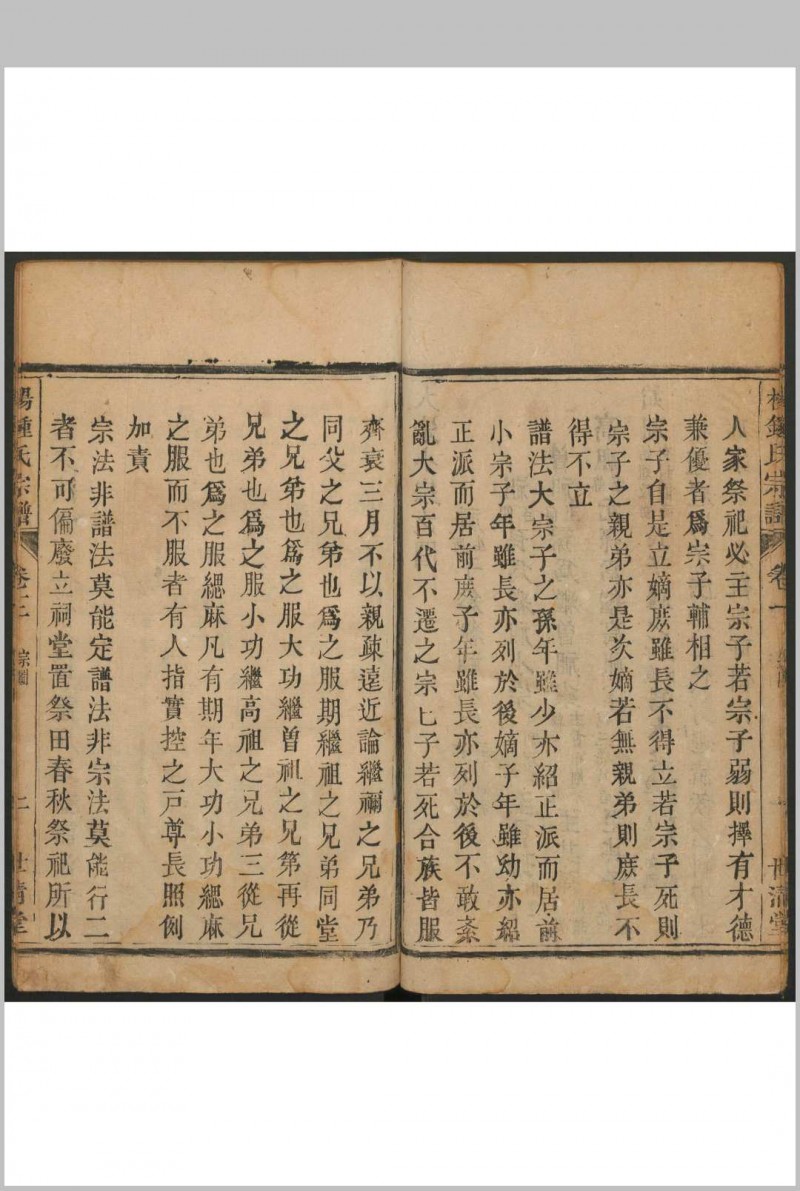 鍾氏宗譜 卷一 世淸堂
人家祭祀必主宗子若宗子弱則擇有才德
兼優者爲宗子輔相之
宗子自是立嫡庶雖長不得立若宗子死則
宗子之親弟亦是次嫡若無親弟則庶長不
得不立
譜法大宗子之孫年雖少亦紹正派而居前
小宗子年雖長亦列於後嫡子年雖幼亦紹
正派而居前庶子年雖長亦列於後不敢紊
亂大宗百代不遷之宗七子若死合族皆服
齊衰三月不以親疎遠近論繼禰之兄弟乃
同父之兄弟也爲之服期繼祖之兄弟同堂
之兄弟也爲之服大功繼曽祖之兄第再從
兄弟也爲之服小功繼高祖之兄弟三從兄
弟也爲之服緦麻凡有期年大功小功緦麻
之服而不服者有人指實控之戸尊長照例
加責
宗法非譜法莫能定譜法非宗法莫能行二
者不可偏廢立祠堂置祭田春秋祭祀所以
陽鍾氏宗譜 卷一 宗圖 二 世淸堂